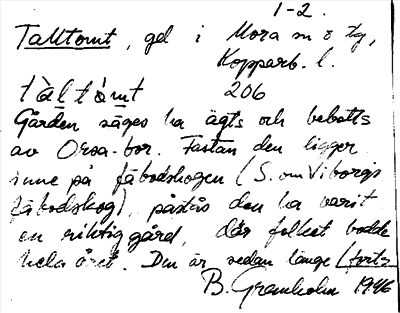 1-2.
Talltomt, gd i Mora m o tg,
Kopparb. l.
tàltòmt 206
Gården säges ha ägts och bebotts
av Orsa-bor. Fastän den ligger
inne på fäbodskogen (S. om Viborgs
fäbodskog), påstås den ha varit
en riktig gård, där folket bodde
hela året. Den är sedan länge (forts
B. Granholm 1946